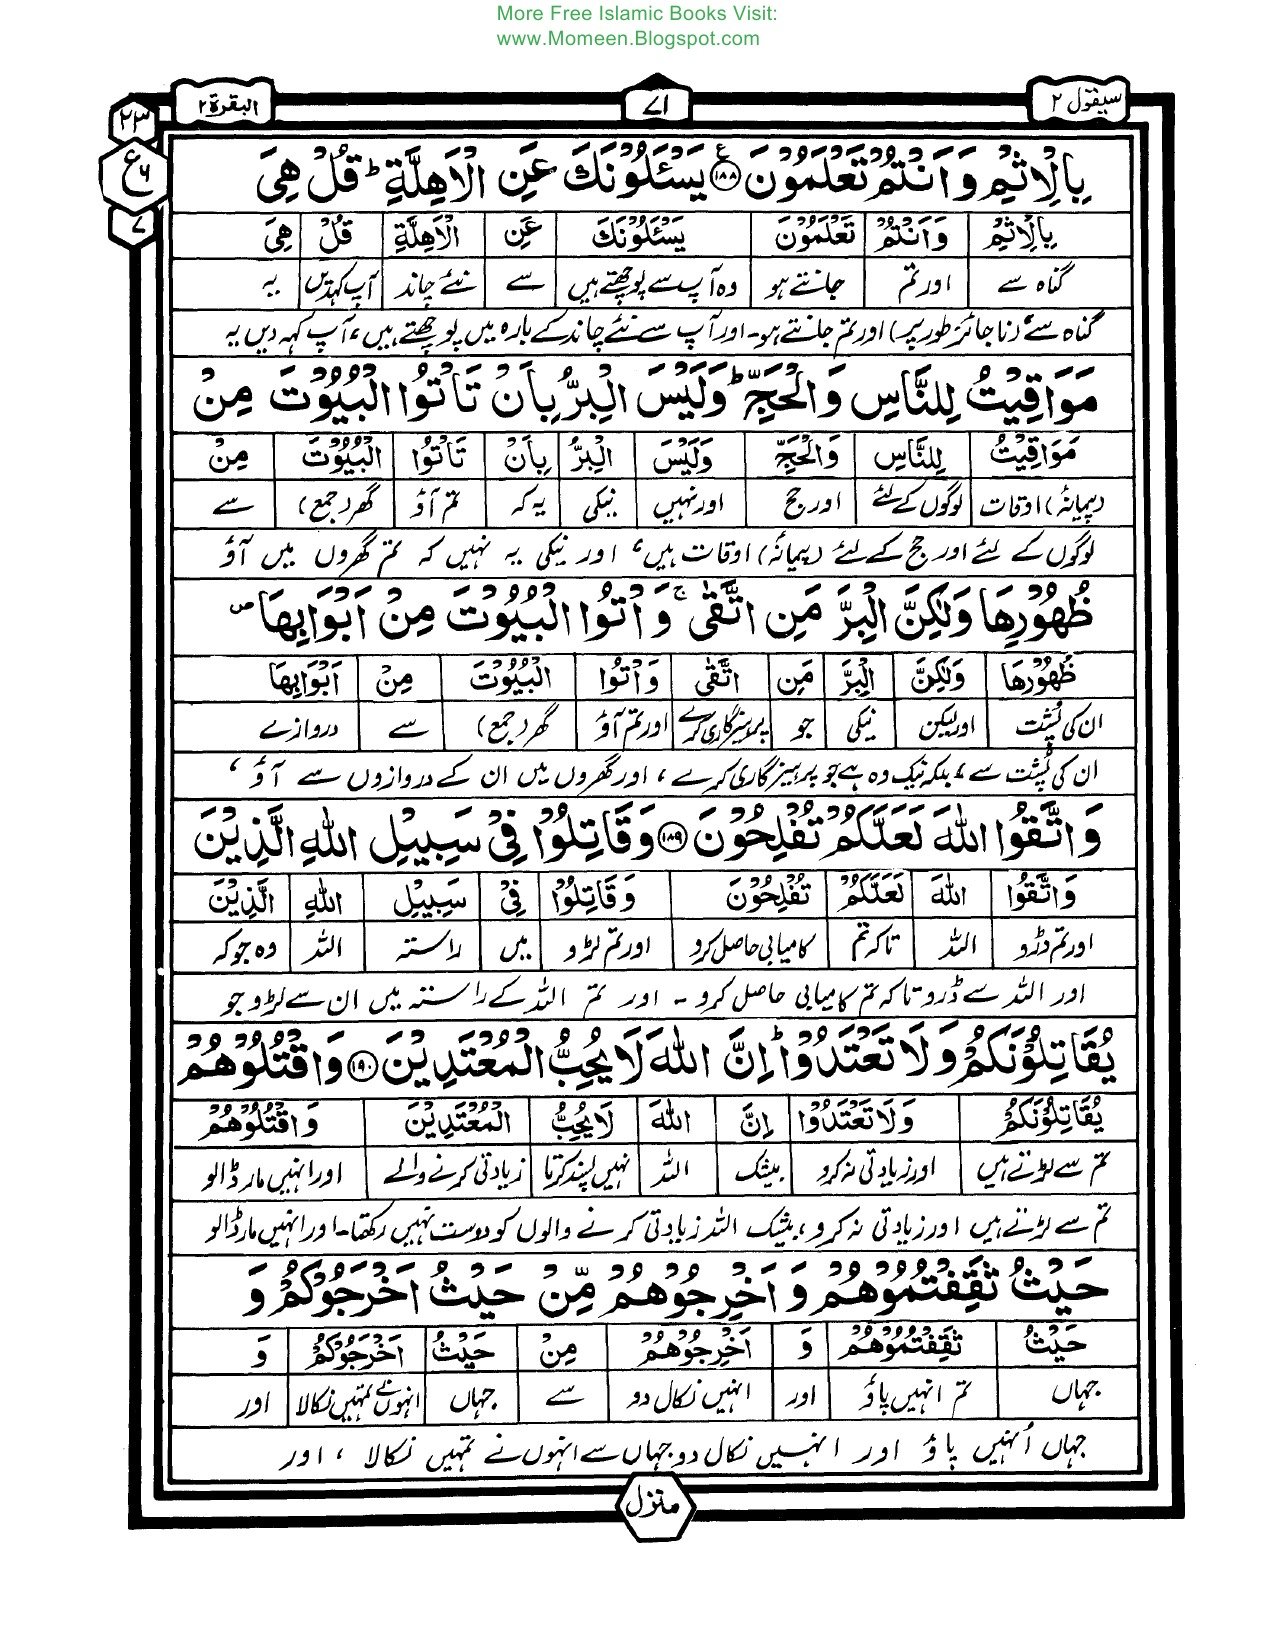 More Free Islamic Books Visit:
www.Momeen.Blogspot.com
سیقول ۲
۷۱
البقرة ۲
۲۳
ع ۶
۷
بِالْاِثْمِ وَاَنْتُمْ تَعْلَمُوْنَ ۝۱۸۸ ع يَسْـَٔلُوْنَكَ عَنِ الْاَهِلَّةِ ؕ قُلْ هِيَ
بِالْاِثْمِ وَاَنْتُمْ تَعْلَمُوْنَ يَسْـَٔلُوْنَكَ عَنِ الْاَهِلَّةِ قُلْ هِيَ
گناہ سے اور تم جانتے ہو وہ آپ سے پوچھتے ہیں سے نئے چاند آپ کہدیں یہ
گناہ سے (ناجائز طور پر) اور تم جانتے ہو۔ اور آپ سے نئے چاند کے بارہ میں پوچھتے ہیں، آپ کہہ دیں یہ
مَوَاقِيْتُ لِلنَّاسِ وَالْحَجِّ ؕ وَلَيْسَ الْبِرُّ بِاَنْ تَاْتُوا الْبُيُوْتَ مِنْ
مَوَاقِيْتُ لِلنَّاسِ وَالْحَجِّ وَلَيْسَ الْبِرُّ بِاَنْ تَاْتُوا الْبُيُوْتَ مِنْ
(پیمانۂ) اوقات لوگوں کے لئے اور حج اور نہیں نیکی یہ کہ تم آؤ گھر (جمع) سے
لوگوں کے لئے اور حج کے لئے (پیمانۂ) اوقات ہیں، اور نیکی یہ نہیں کہ تم گھروں میں آؤ
ظُهُوْرِهَا وَلٰكِنَّ الْبِرَّ مَنِ اتَّقٰى ۚ وَاْتُوا الْبُيُوْتَ مِنْ اَبْوَابِهَا ۪
ظُهُوْرِهَا وَلٰكِنَّ الْبِرَّ مَنِ اتَّقٰى وَاْتُوا الْبُيُوْتَ مِنْ اَبْوَابِهَا
ان کی پُشت اور لیکن نیکی جو پرہیزگاری کرے اور تم آؤ گھر (جمع) سے دروازے
ان کی پُشت سے، بلکہ نیک وہ ہے جو پرہیزگاری کرے، اور گھروں میں ان کے دروازوں سے آؤ،
وَاتَّقُوا اللّٰهَ لَعَلَّكُمْ تُفْلِحُوْنَ ۝۱۸۹ وَقَاتِلُوْا فِيْ سَبِيْلِ اللّٰهِ الَّذِيْنَ
وَاتَّقُوا اللّٰهَ لَعَلَّكُمْ تُفْلِحُوْنَ وَقَاتِلُوْا فِيْ سَبِيْلِ اللّٰهِ الَّذِيْنَ
اور تم ڈرو اللہ تاکہ تم کامیابی حاصل کرو اور تم لڑو میں راستہ اللہ وہ جو کہ
اور اللہ سے ڈرو تاکہ تم کامیابی حاصل کرو۔ اور تم اللہ کے راستہ میں ان سے لڑو جو
يُقَاتِلُوْنَكُمْ وَلَا تَعْتَدُوْا ؕ اِنَّ اللّٰهَ لَا يُحِبُّ الْمُعْتَدِيْنَ ۝۱۹۰ وَاقْتُلُوْهُمْ
يُقَاتِلُوْنَكُمْ وَلَا تَعْتَدُوْا اِنَّ اللّٰهَ لَا يُحِبُّ الْمُعْتَدِيْنَ وَاقْتُلُوْهُمْ
تم سے لڑتے ہیں اور زیادتی نہ کرو بیشک اللہ نہیں پسند کرتا زیادتی کرنے والے اور انہیں مار ڈالو
تم سے لڑتے ہیں اور زیادتی نہ کرو، بیشک اللہ زیادتی کرنے والوں کو دوست نہیں رکھتا۔ اور انہیں مار ڈالو
حَيْثُ ثَقِفْتُمُوْهُمْ وَاَخْرِجُوْهُمْ مِّنْ حَيْثُ اَخْرَجُوْكُمْ وَ
حَيْثُ ثَقِفْتُمُوْهُمْ وَ اَخْرِجُوْهُمْ مِنْ حَيْثُ اَخْرَجُوْكُمْ وَ
جہاں تم انہیں پاؤ اور انہیں نکال دو سے جہاں انہوں نے تمہیں نکالا اور
جہاں اُنہیں پاؤ اور انہیں نکال دو جہاں سے انہوں نے تمہیں نکالا، اور
منزل